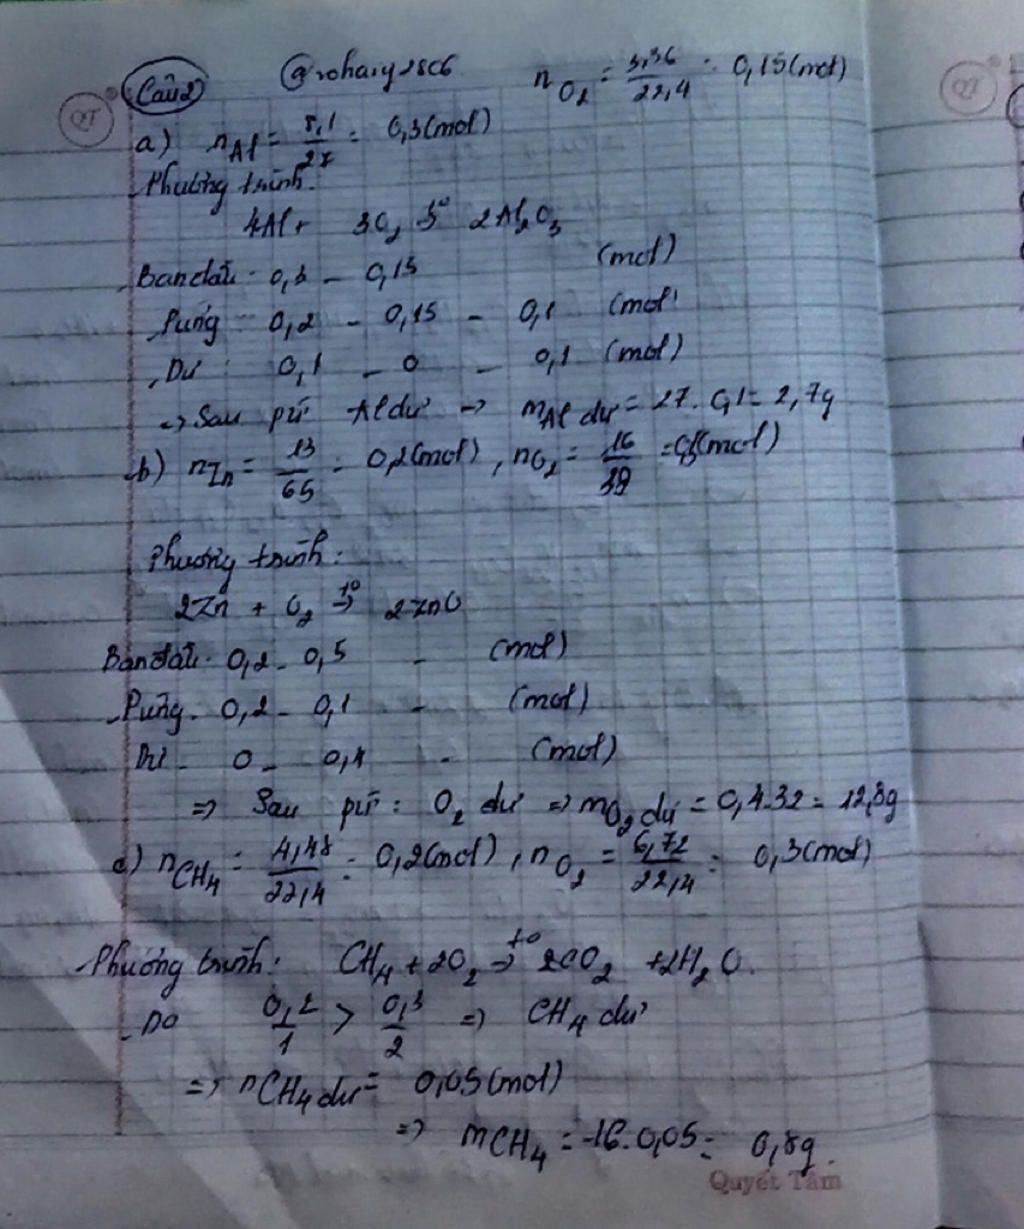 Câu 2 @rohaiy2806 nO2 = 3,36/22,4 = 0,15(mol)
QT
a) nAl = 8,1/27 = 0,3(mol)
Phương trình:
4Al + 3O2 t°→ 2Al2O3
Ban đầu: 0,3 - 0,15 (mol)
Pứng: 0,2 - 0,15 - 0,1 (mol)
Dư: 0,1 - 0 - 0,1 (mol)
=> Sau pứ Al dư => mAl dư = 27. 0,1 = 2,7g
b) nZn = 13/65 = 0,2(mol), nO2 = 16/32 = 0,5(mol)
Phương trình:
2Zn + O2 t°→ 2ZnO
Ban đầu: 0,2 - 0,5 - (mol)
Pứng - 0,2 - 0,1 - (mol)
Dư - 0 - 0,4 - (mol)
=> Sau pứ: O2 dư => mO2 dư = 0,4.32 = 12,8g
c) nCH4 = 4,48/22,4 = 0,2(mol), nO2 = 6,72/22,4 = 0,3(mol)
Phương trình: CH4 + 2O2 t°→ 2CO2 + 2H2O.
Do 0,2/1 > 0,3/2 => CH4 dư
=> nCH4 dư = 0,05(mol)
=> mCH4 = 16.0,05 = 0,8g
Quyết Tâm
QT